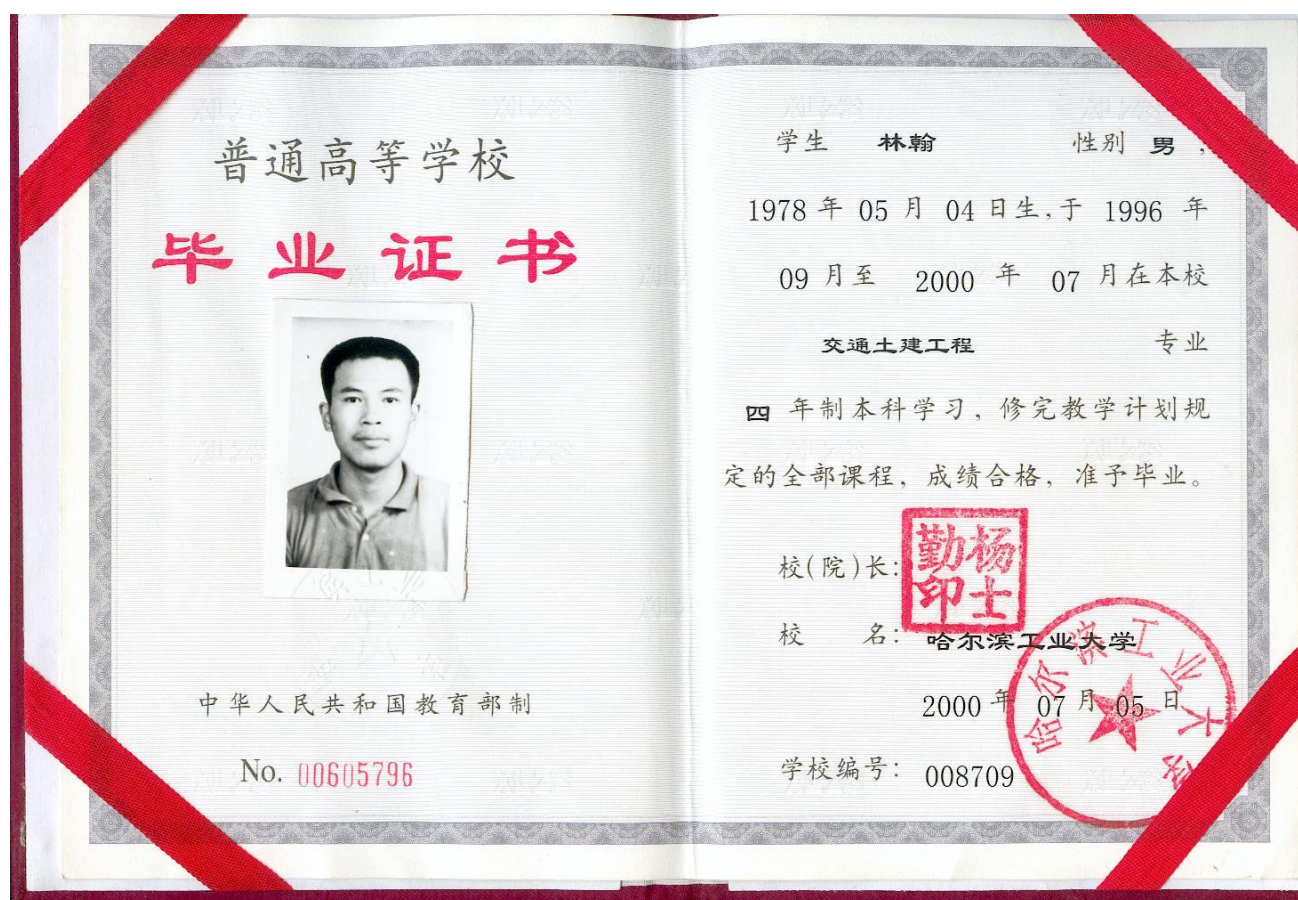 普通高等学校
毕业证书
中华人民共和国教育部制
No. 00605796
学生 林翰 性别 男,
1978 年 05 月 04 日生,于 1996 年
09 月至 2000 年 07 月在本校
交通土建工程 专业
四 年制本科学习, 修完教学计划规
定的全部课程, 成绩合格, 准予毕业。
校(院)长:
杨士勤印
校 名: 哈尔滨工业大学
2000 年 07 月 05 日
学校编号: 008709
哈尔滨工业大学